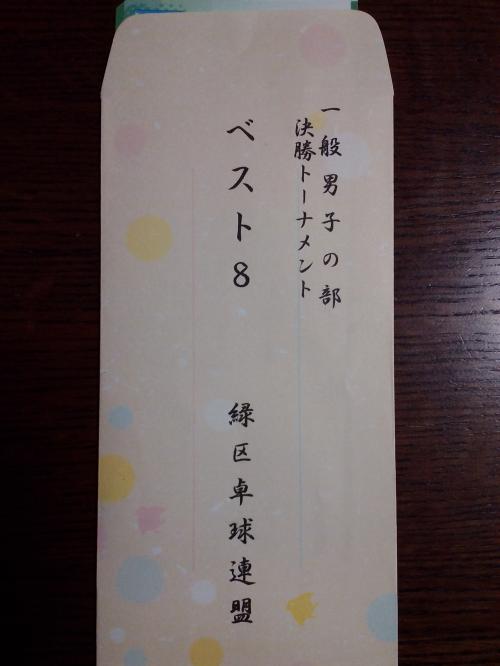 一般男子の部
決勝トーナメント
ベスト8
緑区卓球連盟